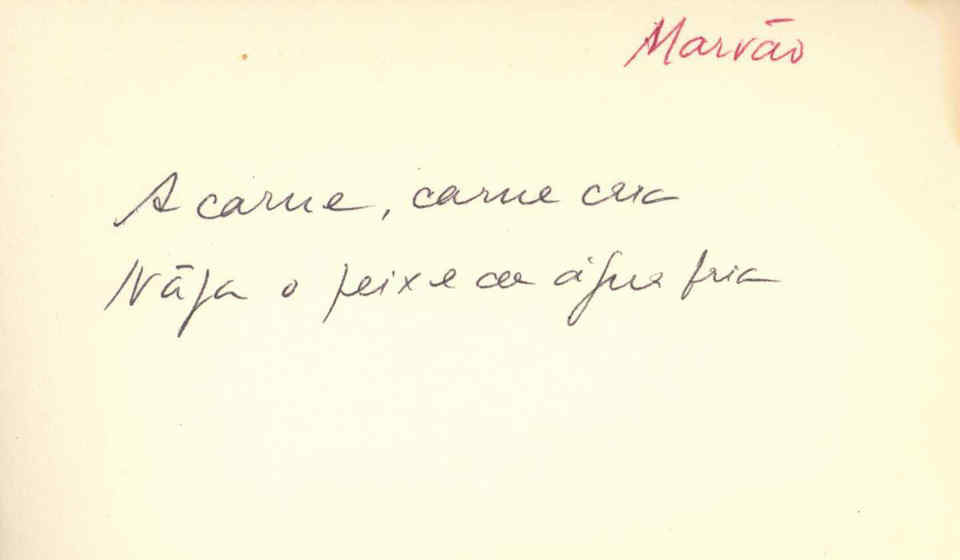 Marvão
A carne, carne cria
Nãja o peixe da água fria